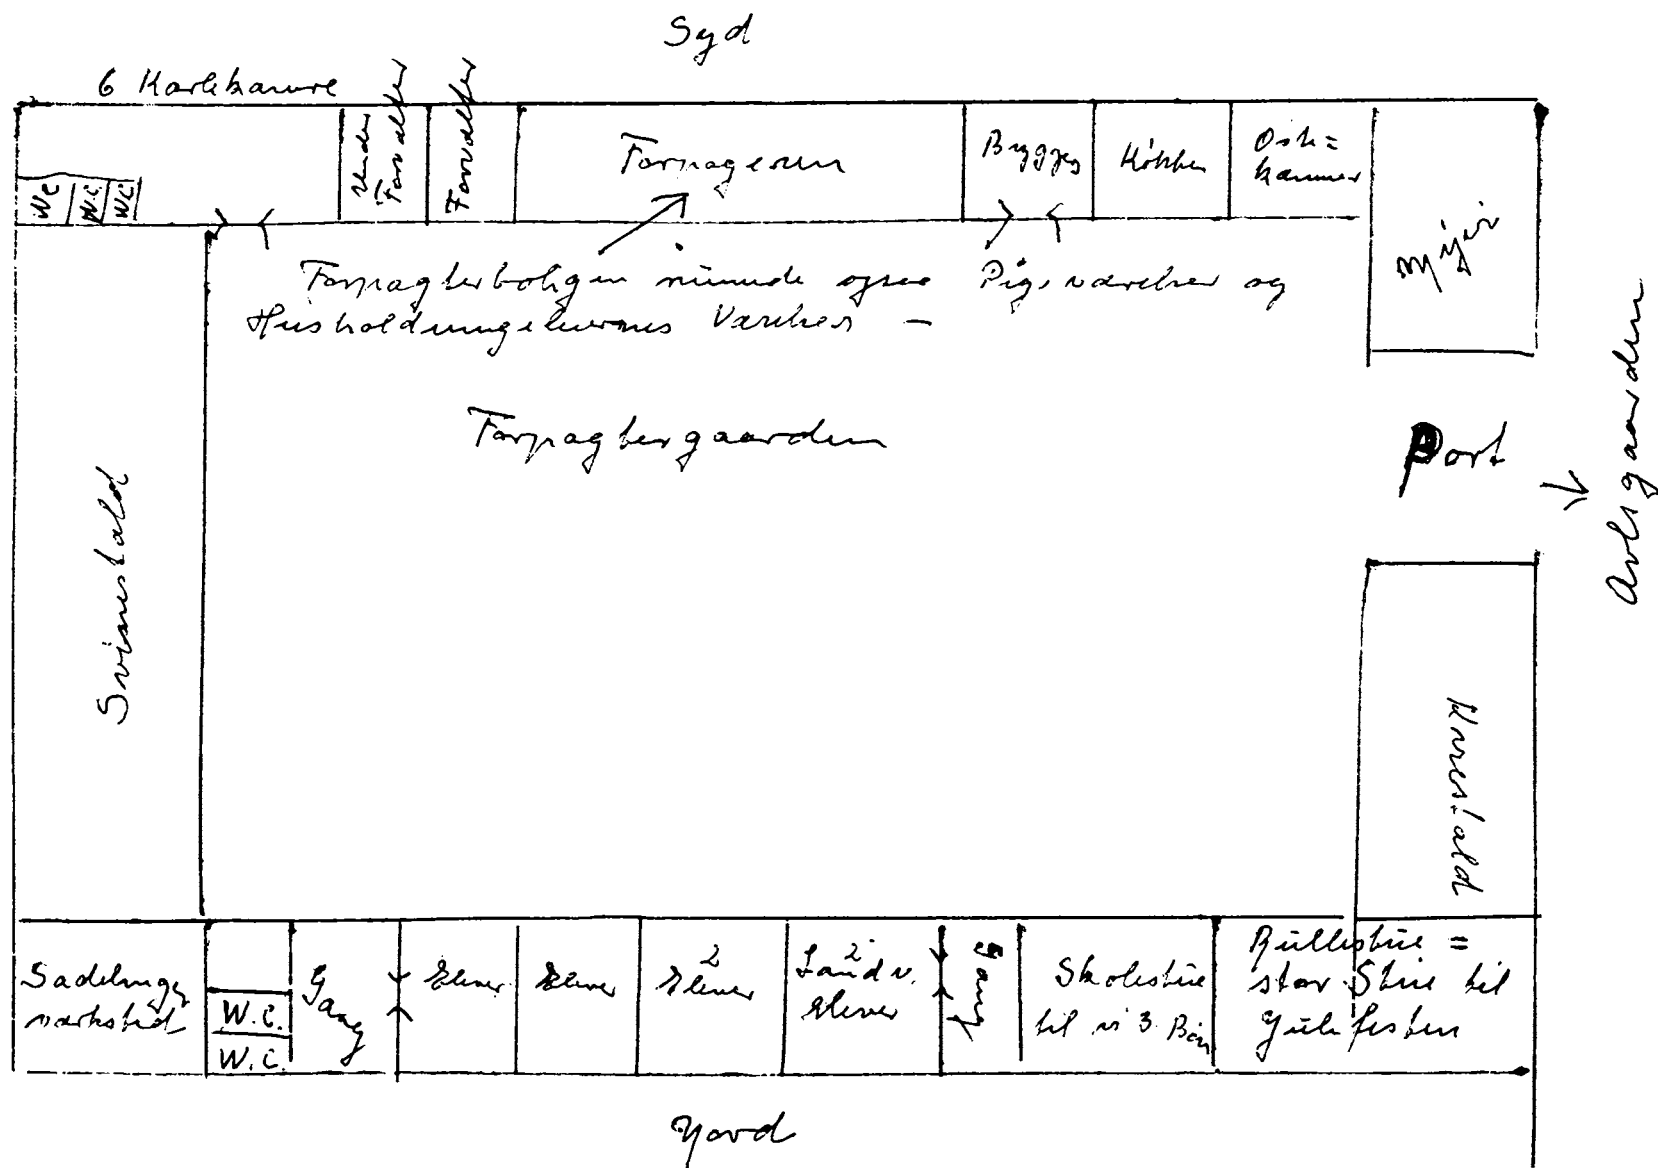 Syd
6 Karlekamre
Under
Forvalter
Forvalter
Forpagteren
Bryggers
Køkken
Oste=
kammer
Mejeri
W.C.
W.C.
W.C.
Forpagterboligen rummede også Pigeværelser og
Husholdningselevernes Værelser -
Forpagtergaarden
Port
Avlsgaarden
Svinestald
Kørestald
Sadelmager
værksted
W.C.
W.C.
Gang
Elever
Elever
2
Elever
2
Landv.
elever
Gang
Skolestue
til vi 3 Børn
Rullestue =
stor Stue til
Julefesten
Nord